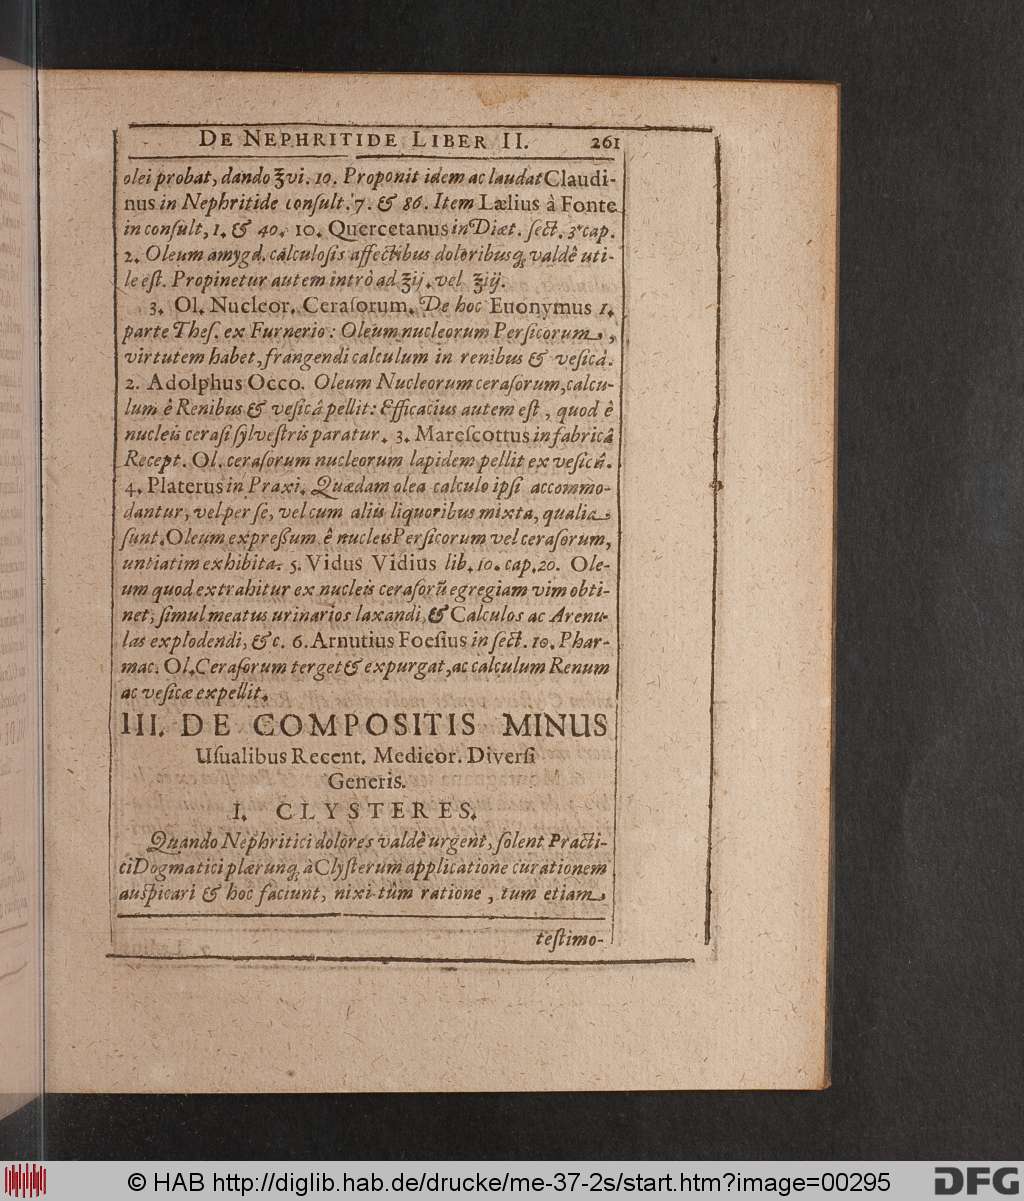 DE NEPHRITIDE LIBER II. 261
olei probat, dando ʒvi. 10. Proponit idem ac laudat Claudi-
nus in Nephritide conſult. 7. & 86. Item Lælius à Fonte
in conſult, 1. & 40. 10. Quercetanus in Diæt. ſect. 3. cap.
2. Oleum amygd. calculoſis affectibus doloribusq; valdê uti-
le eſt. Propinetur autem intrò ad ʒij. vel ʒiij.
3. Ol. Nucleor. Ceraſorum. De hoc Euonymus 1.
parte Theſ. ex Furnerio: Oleum nucleorum Perſicorum,
virtutem habet, frangendi calculum in renibus & veſicâ.
2. Adolphus Occo. Oleum Nucleorum ceraſorum, calcu-
lum ê Renibus & veſicâ pellit: Efficacius autem eſt, quod ê
nucleis ceraſi ſylveſtris paratur. 3. Mareſcottus in fabricâ
Recept. Ol. ceraſorum nucleorum lapidem pellit ex veſicâ.
4. Platerus in Praxi. Quædam olea calculo ipſi accommo-
dantur, vel per ſe, vel cum aliis liquoribus mixta, qualia
ſunt. Oleum expreſſum ê nucleis Perſicorum vel ceraſorum,
untiatim exhibita. 5. Vidus Vidius lib. 10. cap. 20. Ole-
um quod extrahitur ex nucleis ceraſorũ egregiam vim obti-
net, ſimul meatus urinarios laxandi, & Calculos ac Arenu-
las explodendi, &c. 6. Arnutius Foeſius in ſect. 10. Phar-
mac. Ol. Ceraſorum terget & expurgat, ac calculum Renum
ac veſicæ expellit.
III. DE COMPOSITIS MINUS
Uſualibus Recent. Medicor. Diverſi
Generis.
I. CLYSTERES.
Quando Nephritici dolores valdê urgent, ſolent Practi-
ci Dogmatici plærunq; à Clyſterum applicatione curationem
auſpicari & hoc faciunt, nixi tûm ratione, tum etiam
teſtimo-
© HAB http://diglib.hab.de/drucke/me-37-2s/start.htm?image=00295
DFG